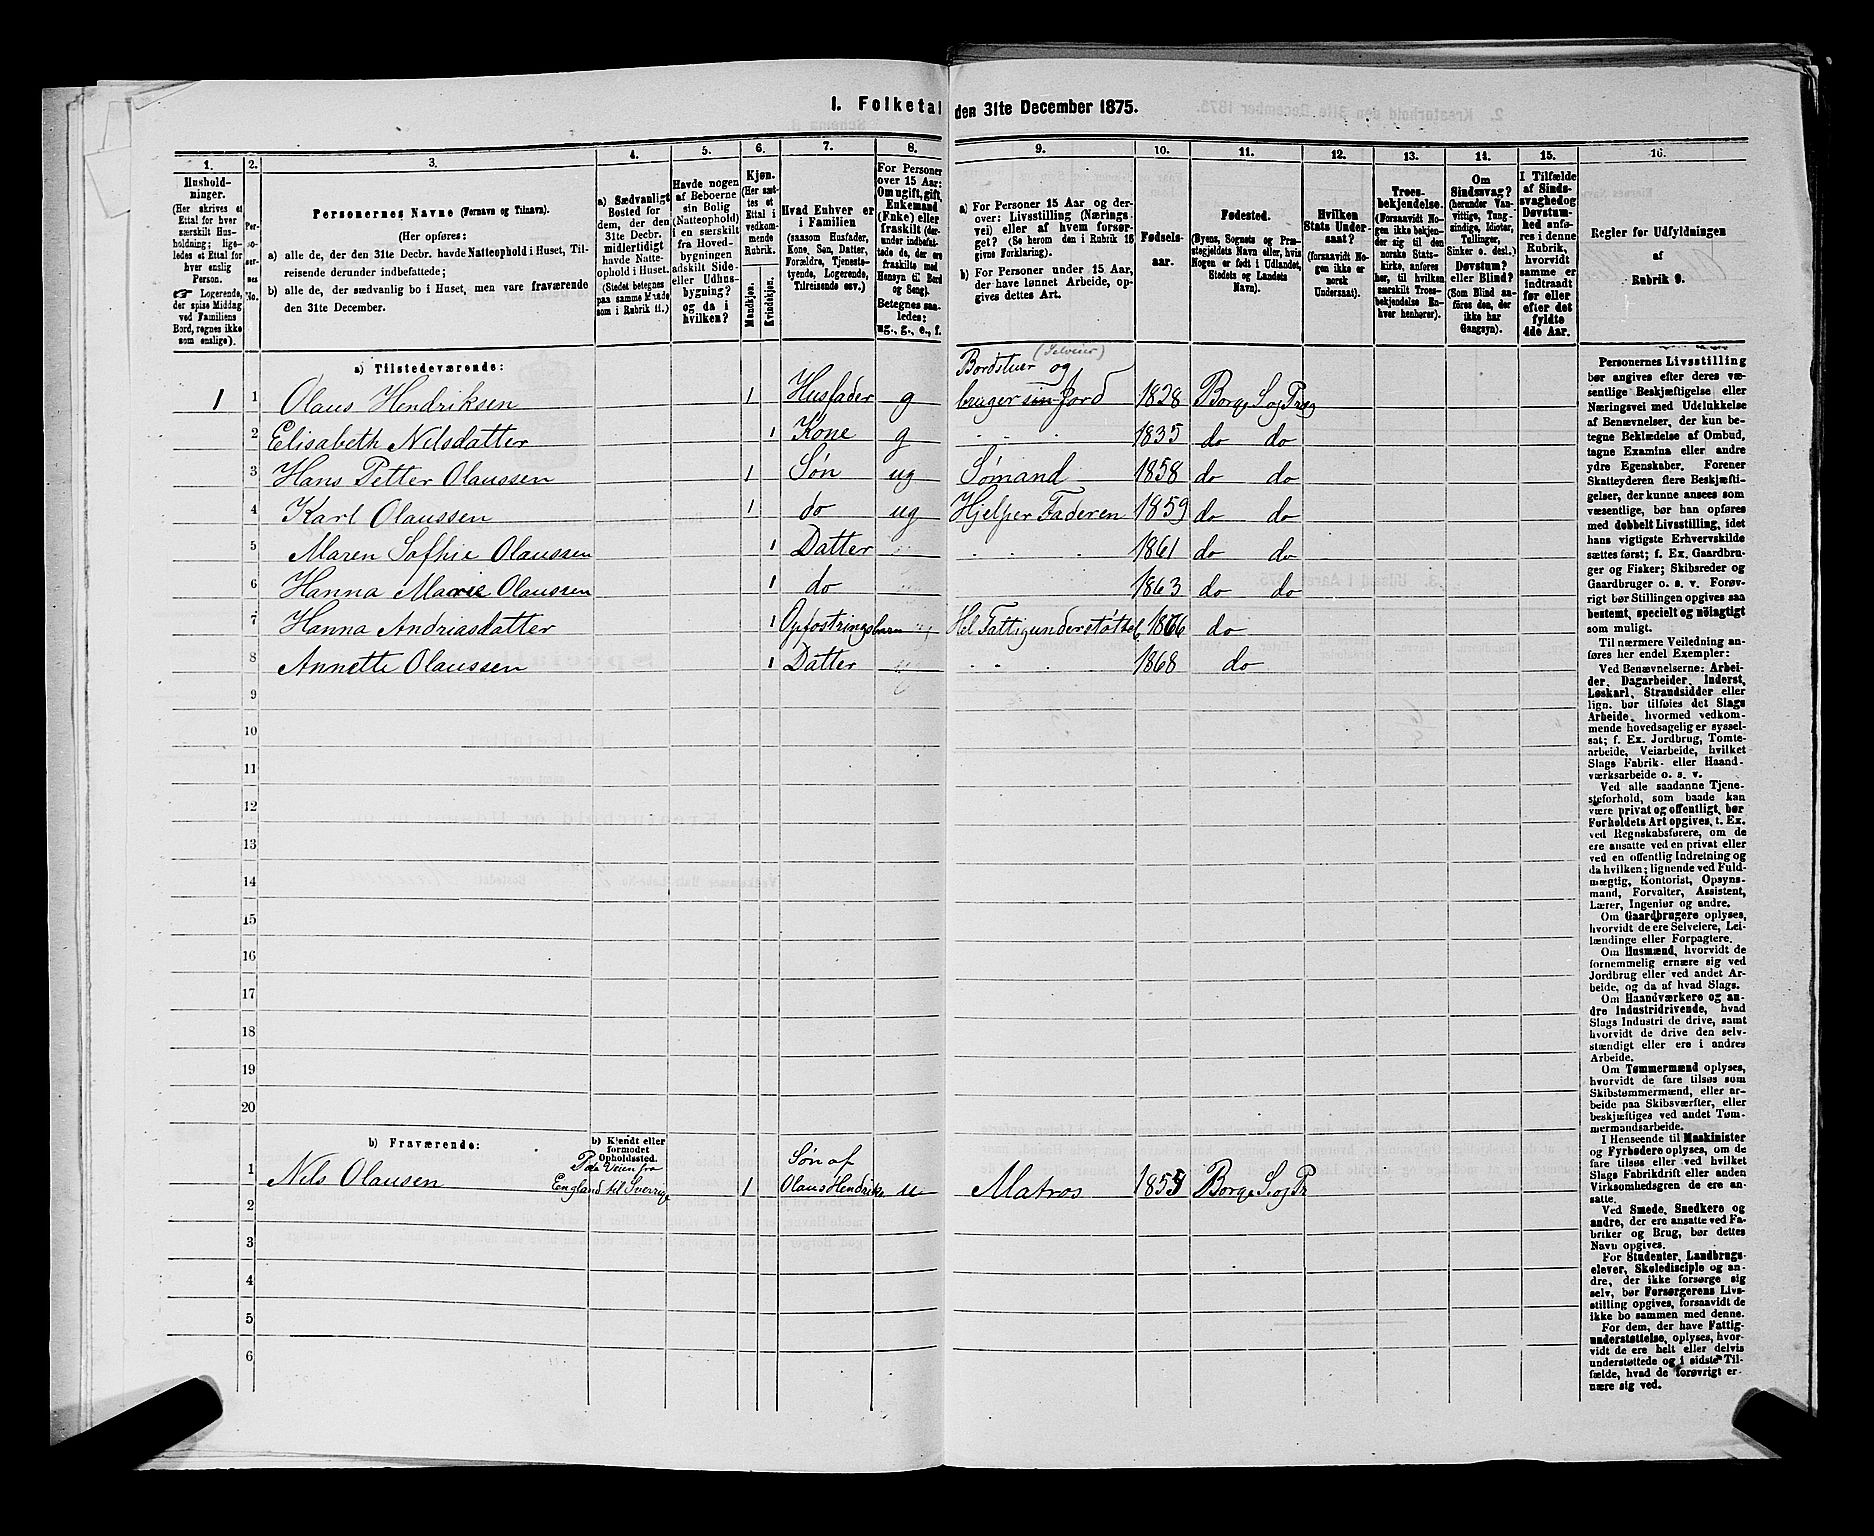 I. Folketal den 31te December 1875.
1. 2. 3. 4. 5. 6. 7. 8. 9. 10. 11. 12. 13. 14. 15. 16.
Husholdninger.
(Her skrives et Ettal for hver særskilt Husholdning; ligeledes et Ettal for hver enslig Person.
☞ Logerende, der spise Middag ved Familiens Bord, regnes ikke som enslige).
Personernes No.
Personernes Navne (Fornavn og Tilnavn).
(Her opføres:
a) alle de, der den 31te Decbr. havde Natteophold i Huset, Tilreisende derunder indbefattede;
b) alle de, der sædvanlig bo i Huset, men vare fraværende den 31te December.
a) Sædvanligt Bosted for dem, der den 31te Decbr. midlertidigt havde Natteophold i Huset. (Stedet betegnes paa samme Maade som i Rubrik 11.)
Havde nogen af Beboerne sin Bolig (Natteophold) i en særskilt fra Hovedbygningen adskilt Side- eller Udhusbygning? og da i hvilken?
Kjøn. (Her sættes et Ettal i vedkommende Rubrik.
Mandkjøn.
Kvindekjøn.
Hvad Enhver er i Familien
(saasom Husfader, Kone, Søn, Datter, Forældre, Tjenestetyende, Logerende, Tilreisende osv.)
For Personer over 15 Aar: Om ugift, gift, Enkemand (Enke) eller fraskilt (derunder indbefattede de, der ere fraskilte med Hensyn til Bord og Seng). Betegnes saaledes: ug., g., e., f.
a) For Personer 15 Aar og derover: Livsstilling (Næringsvei) eller af hvem forsørget? (Se herom den i Rubrik 16 givne Forklaring).
b) For Personer under 15 Aar, der have lønnet Arbeide, opgives dettes Art.
Fødselsaar.
Fødested.
(Byens, Sognets og Præstegjeldets Navn eller, hvis Nogen er født i Udlandet, Stedets og Landets Navn).
Hvilken Stats Undersaat?
(forsaavidt Nogen ikke er norsk Undersaat).
Troesbekjendelse.
(Forsaavidt Nogen ikke bekjender sig til den norske Statskirke, anføres her, til hvilken særskilt Troesbekjendelse Enhver henhører).
Om Sindssvag? (herunder Vanvittige, Tungsindige, Idioter, Tullinger, Sinker o. desl.) Døvstum? eller Blind? (Som Blind anføres den, der ikke har Gangsyn).
I Tilfælde af Sindssvaghed og Døvstumhed anføres i denne Rubrik, hvorvidt samme er indtraadt før eller efter det fyldte 4de Aar.
Regler for Udfyldningen af Rubrik 9.
a) Tilstedeværende:
(Selveier)
Bordstuer og
1 1 Olaus Hendriksen 1 Husfader g bruger sin Jord 1828 Borge S og Præg
2 Elisabeth Nilsdatter 1 Kone g 1835 do do
3 Hans Petter Olaussen 1 Søn ug Sømand 1858 do do
4 Karl Olaussen 1 do ug Hjelper Faderen 1859 do do
5 Maren Soffie Olaussen 1 Datter 1861 do do
6 Hanna Marie Olaussen 1 do 1863 do do
7 Hanna Andriasdatter 1 Opfostringsbarn Hel Fattigunderstøttet 1866 do
8 Annette Olaussen 1 Datter 1868 do
9
10
11
12
13
14
15
16
17
18
19
20
b) Fraværende:
b) Kjendt eller formodet Opholdssted.
Paa Veien fra Søn af
1 Nils Olausen England til Sverrige 1 Olaus Hendriks Matros Borge S og Pr
2
3
4
5
6
Personernes Livsstilling
bør angives efter deres væ-
sentlige Beskjæftigelse eller
Næringsvei med Udelukkelse
af Benævnelser, der kun be-
tegne Beklædelse af Ombud,
tagne Examina eller andre
ydre Egenskaber. Forener
Skatteyderen flere Beskjæfti-
gelser, der kunne ansees som
væsentlige, bør han opføres
med dobbelt Livsstilling, idet
hans vigtigste Erhvervskilde
sættes først; f. Ex. Gaardbru-
ger og Fisker; Skibsreder og
Gaardbruger o. s. v. Forøv-
rigt bør Stillingen opgives saa
bestemt, specielt og nøiagtigt
som muligt.
Til nærmere Veiledning an-
føres her endel Exempler:
Ved Benævnelserne: Arbei-
der, Dagarbeider, Inderst,
Løskarl, Strandsidder eller
lign. bør tilføies det Slags
Arbeide, hvormed vedkom-
mende hovedsagelig er syssel-
sat; f. Ex. Jordbrug, Tomte-
arbeide, Veiarbeide, hvilket
Slags Fabrik- eller Haand-
værksarbeide o. s. v.
Ved alle saadanne Tjene-
steforhold, som baade kan
være privat og offentligt, bør
Forholdets Art opgives, t. Ex.
ved Regnskabsførere, om de
ere ansatte ved en privat eller
ved en offentlig Indretning og
da hvilken; lignende ved Fuld-
mægtig, Kontorist, Opsyns-
mand, Forvalter, Assistent,
Lærer, Ingeniør og andre.
Om Gaardbrugere oplyses,
hvorvidt de ere Selveiere, Lei-
lændinge eller Forpagtere.
Om Husmænd, hvorvidt de
fornemmelig ernære sig ved
Jordbrug eller ved andet Ar-
beide, og da af hvad Slags.
Om Haandværkere og an-
dre Industridrivende, hvad
Slags Industri de drive, samt
hvorvidt de drive den selv-
stændigt eller ere i andres
Arbeide.
Om Tømmermænd oplyses,
hvorvidt de fare tilsøs som
Skibstømmermænd, eller ar-
beide paa Skibsværfter, eller
beskjæftiges ved andet Tøm-
mermandsarbeide.
I Henseende til Maskinister
og Fyrbødere oplyses, om de
fare tilsøs eller ved hvilket
Slags Fabrikdrift eller anden
Virksomhedsgren de ere an-
satte.
Ved Smede, Snedkere og
andre, der ere ansatte ved Fa-
briker og Brug, bør dettes
Navn opgives.
For Studenter, Landbrugs-
elever, Skoledisciple og an-
dre, der ikke forsørge sig
selv, bør Forsørgerens Livs-
stilling opgives, forsaavidt de
ikke bo sammen med denne.
For dem, der have Fattig-
understøttelse, oplyses, hvor-
vidt de ere helt eller delvis
understøttede og i sidste Til-
fælde, hvad de forøvrigt er-
nære sig ved.